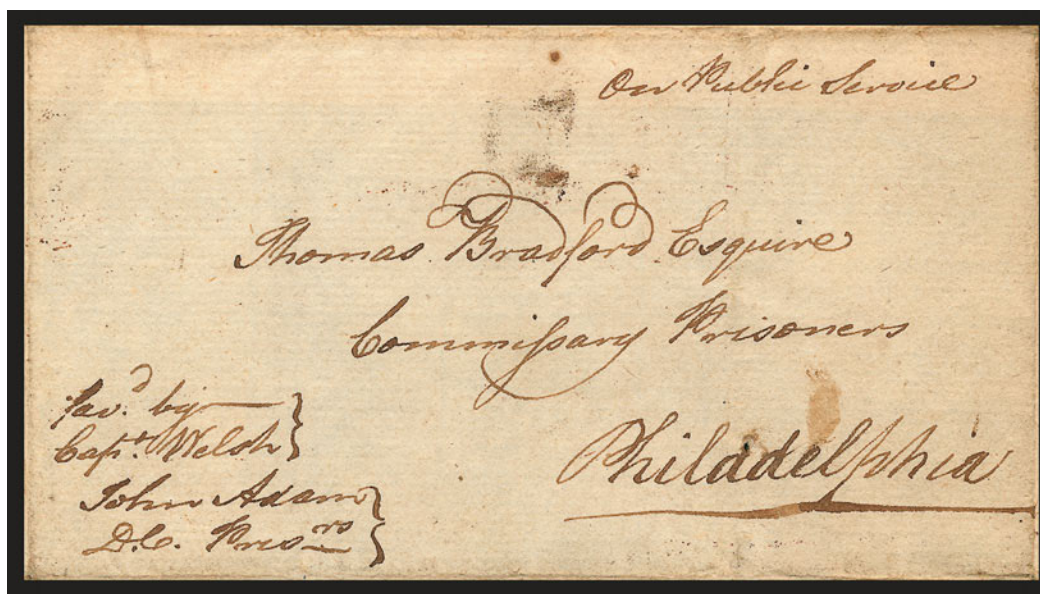 On Public Service
Thomas Bradford Esquire
Commiſsary Prisoners
Philadelphia
fav.d by
Capt. Welsh
John Adam
D.C. Pris.rs